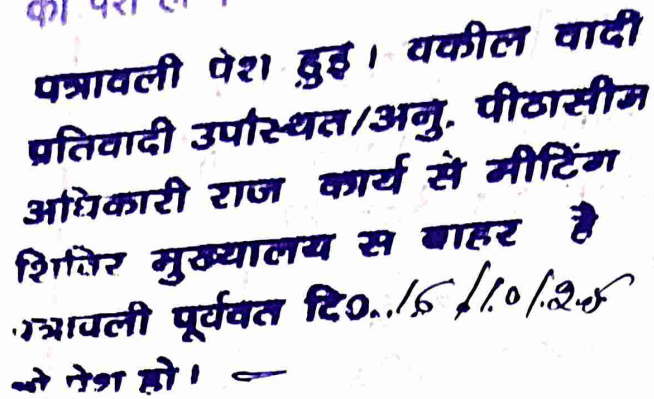 का पेश
पत्रावली पेश हुई। वकील वादी
प्रतिवादी उपस्थित/अनु. पीठासीम
अधिकारी राज कार्य से मीटिंग
शिविर मुख्यालय स बाहर है
पत्रावली पूर्ववत दि0..15/10/25
को पेश हो।